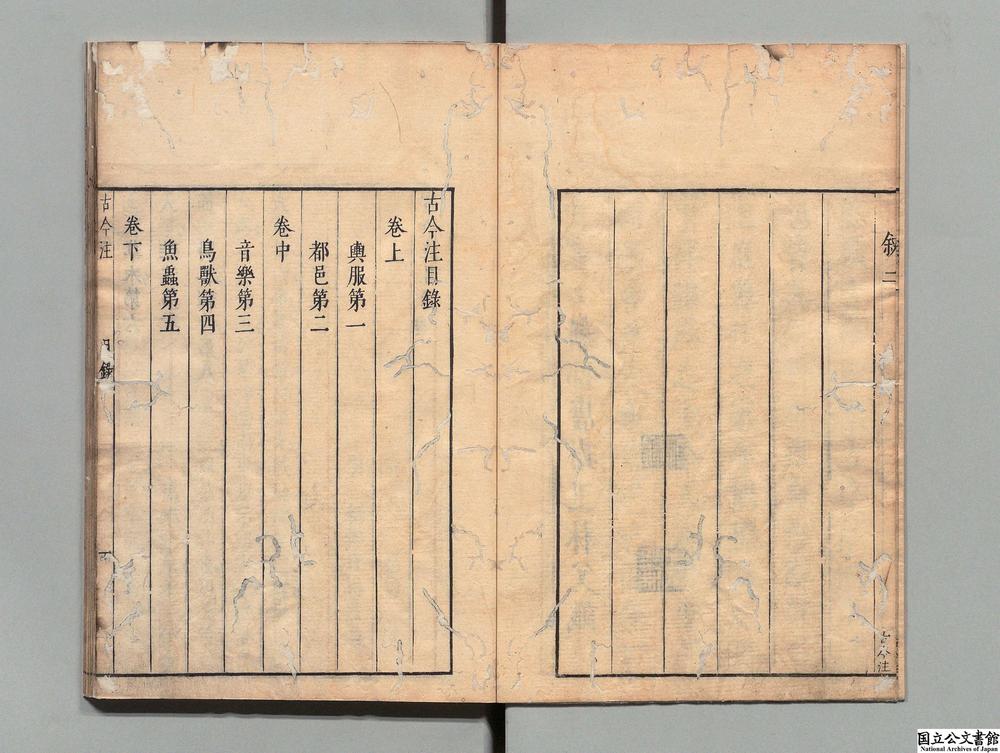 敘 二
古今注
古今注目錄
卷上
輿服第一
都邑第二
卷中
音樂第三
鳥獸第四
魚蟲第五
卷下
古今注 目錄
国立公文書館
National Archives of Japan